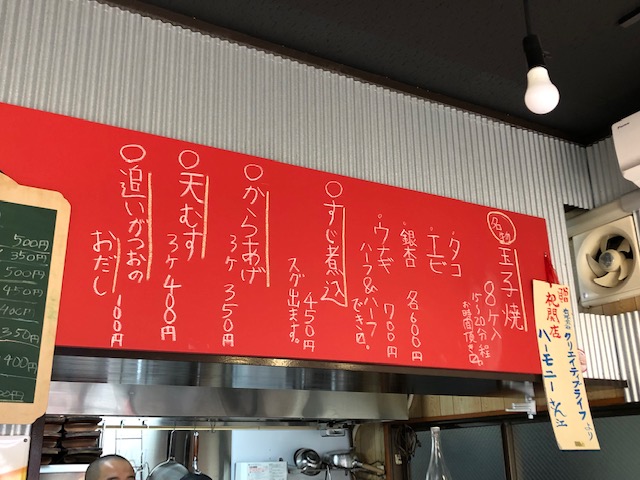 名物
玉子焼
8ヶ入
15〜20分程
お時間頂きます
・タコ
・エビ
・銀杏
各600円
・ウナギ
700円
ハーフ&ハーフ
できます。
○すじ煮込
450円
スグ出ます。
○からあげ
3ヶ350円
○天むす
3ヶ400円
○追いがつおの
おだし
100円
500円
350円
500円
450円
400円
350円
400円
祝開店
クリエイティブライフより
ハーモニー